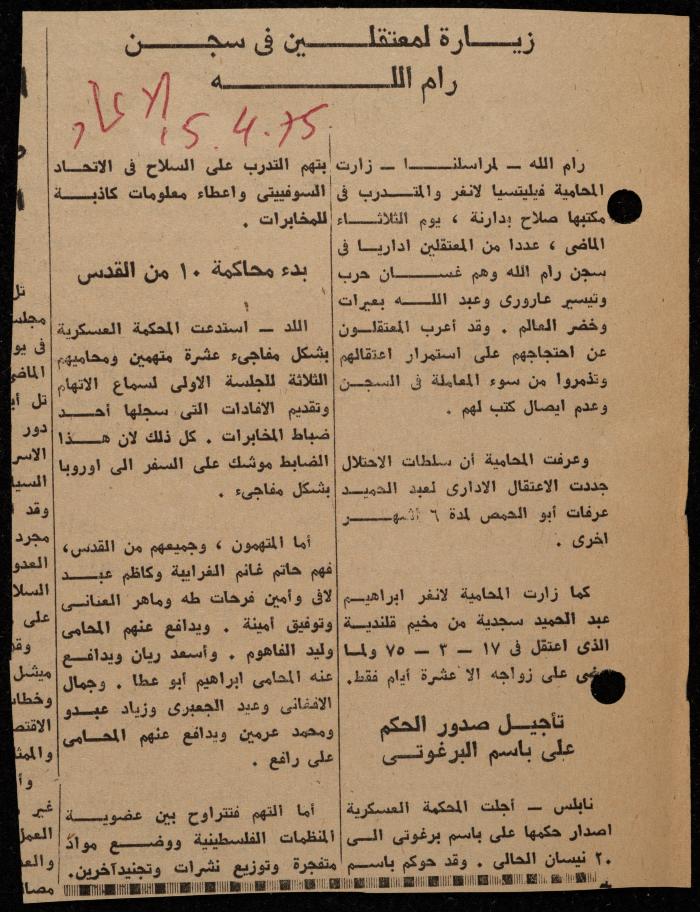 زيـــارة لمعتقلــــين فى سجــــن
رام اللـــــــــــه
الاتحاد
15.4.75
رام الله ــ لمراسلنــــا ــ زارت
المحامية فيليتسيا لانغر والمتـدرب فى
مكتبها صلاح بدارنة ، يوم الثلاثـــاء
الماضى ، عددا من المعتقلين اداريـا فى
سجن رام الله وهم غســـان حرب
وتيسير عارورى وعبد اللــه بعيرات
وخضر العالم . وقد أعرب المعتقلــون
عن احتجاجهم على استمرار اعتقالهم
وتذمروا من سوء المعاملة فى السجــن
وعدم ايصال كتب لهم .
وعرفت المحامية أن سلطات الاحتلال
جددت الاعتقال الادارى لعبد الحميــد
عرفات أبو الحمص لمدة ٦ أشهـــر
اخرى .
كما زارت المحامية لانغر ابراهيــم
عبد الحميد سجدية من مخيم قلنديــة
الذى اعتقل فى ١٧ ــ ٣ ــ ٧٥ ولمـا
على زواجه الا عشرة أيام فقط.
تأجيــل صدور الحكم
على باسم البرغوتــى
نابلس ــ أجلت المحكمة العسكريـة
اصدار حكمها على باسم برغوتى الــى
٢٠ نيسان الحالى . وقد حوكم باســم
بتهم التدرب على السلاح فى الاتحــاد
السوفييتى واعطاء معلومات كاذبــة
للمخابرات .
بدء محاكمة ١٠ من القدس
اللد ــ استدعت المحكمة العسكرية
بشكل مفاجىء عشرة متهمين ومحاميهم
الثلاثة للجلسة الاولى لسماع الاتهام
وتقديم الافادات التى سجلها أحــد
ضباط المخابرات . كل ذلك لان هــذا
الضابط موشك على السفر الى اوروبا
بشكل مفاجىء .
أما المتهمون ، وجميعهم من القدس،
فهم حاتم غانم الغرايبة وكاظم عبــد
لافى وأمين فرحات طه وماهر العنانـى
وتوفيق أمينة . ويدافع عنهم المحامى
وليد الفاهوم . وأسعد ريان ويدافــع
عنه المحامى ابراهيم أبو عطا . وجمال
الافغانى وعيد الجعبرى وزياد عبـدو
ومحمد عرمين ويدافع عنهم المحـامى
على رافع .
أما التهم فتتراوح بين عضويــة
المنظمات الفلسطينية ووضــع موادّ
متفجرة وتوزيع نشرات وتجنيد آخرين.
تل
مجلس
فى يو
الماضى
تل أب
دور
الاسر
السيا
وقد
مجرد
العدو
السلا
على
وقر
ميشل
وخطا
الاقتص
والمثا
وأ
غير
العمل
والعد